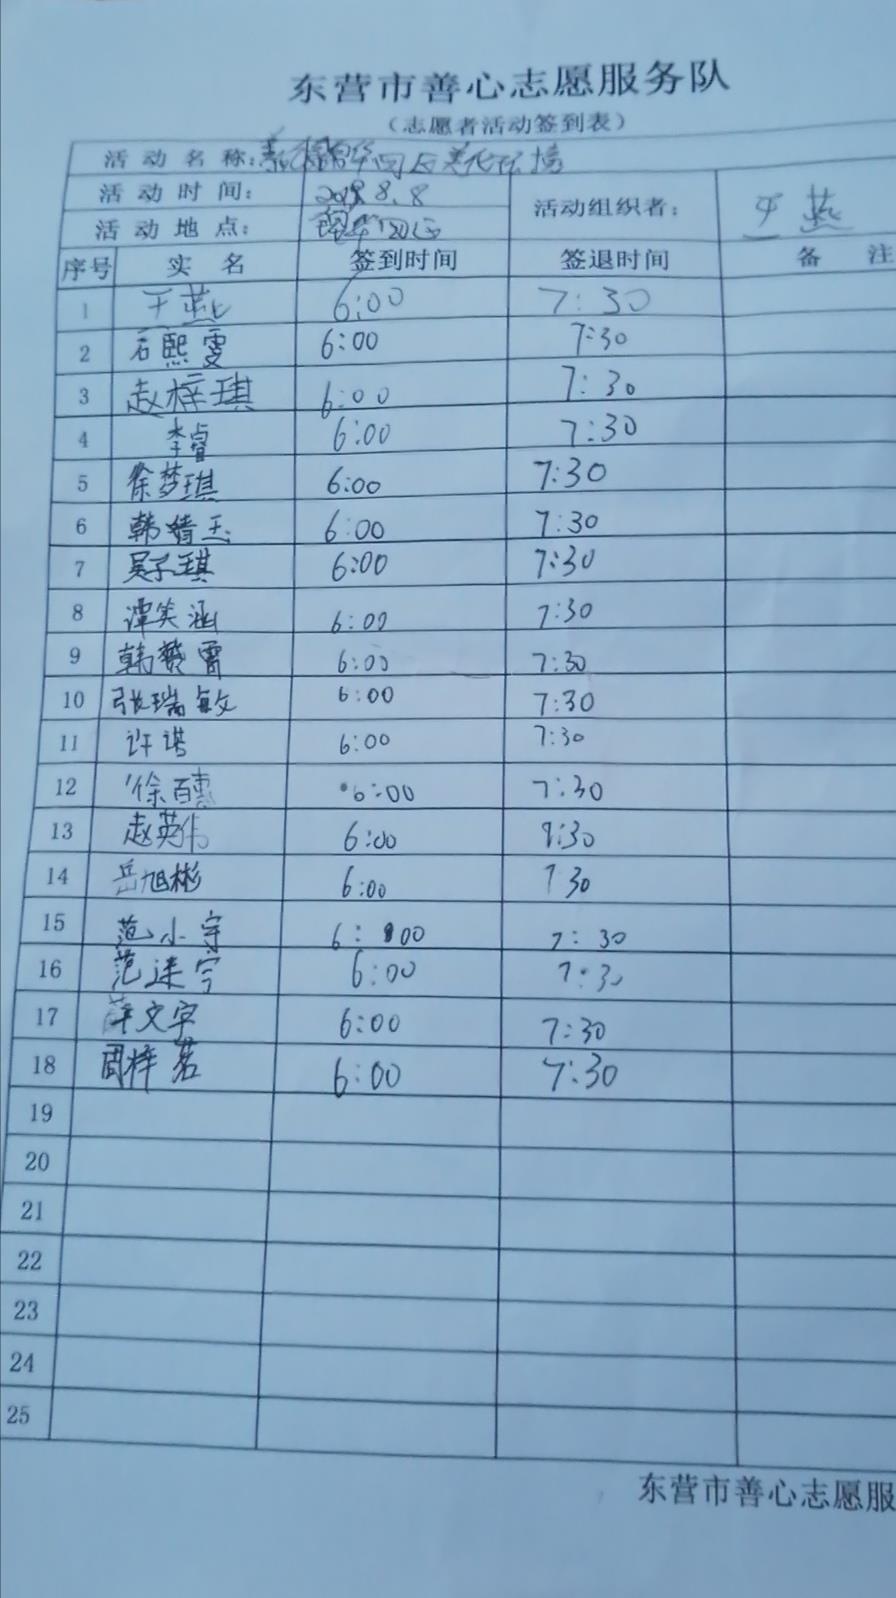 东营市善心志愿服务队
（志愿者活动签到表）
活动名称：锦华四区美化环境
活动时间： 2018.8.8 活动组织者： 王燕
活动地点： 锦华四区
序号 实名 签到时间 签退时间 备注
1 王燕 6:00 7:30
2 石熙雯 6:00 7:30
3 赵梓琪 6:00 7:30
4 李睿 6:00 7:30
5 徐梦琪 6:00 7:30
6 韩婧玉 6:00 7:30
7 吴子琪 6:00 7:30
8 谭笑涵 6:00 7:30
9 韩赞霄 6:00 7:30
10 张瑞敏 6:00 7:30
11 许诺 6:00 7:30
12 徐百惠 6:00 7:30
13 赵英伟 6:00 7:30
14 岳旭彬 6:00 7 30
15 范小宇 6:00 7:30
16 范 6:00 7:30
17 薛文字 6:00 7:30
18 周梓茗 6:00 7:30
19
20
21
22
23
24
25
东营市善心志愿服